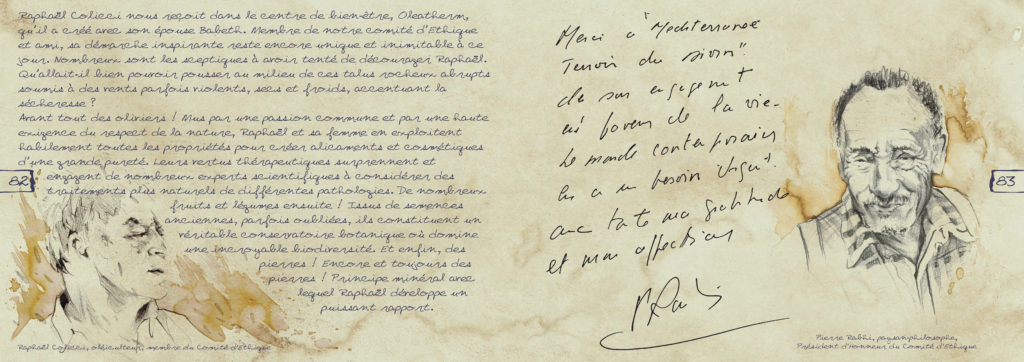 Raphaël Colicci nous reçoit dans le centre de bien-être, Oleatherm,
qu'il a créé avec son épouse Babeth. Membre de notre comité d'Ethique
et ami, sa démarche inspirante reste encore unique et inimitable à ce
jour. Nombreux sont les sceptiques à avoir tenté de décourager Raphaël.
Qu'allait-il bien pouvoir pousser au milieu de ces talus rocheux abrupts
soumis à des vents parfois violents, secs et froids, accentuant la
sécheresse ?
Avant tout des oliviers ! Mus par une passion commune et par une haute
exigence du respect de la nature, Raphaël et sa femme en exploitent
habilement toutes les propriétés pour créer alicaments et cosmétiques
d'une grande pureté. Leurs vertus thérapeutiques surprennent et
engagent de nombreux experts scientifiques à considérer des
traitements plus naturels de différentes pathologies. De nombreux
fruits et légumes ensuite ! Issus de semences
anciennes, parfois oubliées, ils constituent un
véritable conservatoire botanique où domine
une incroyable biodiversité. Et enfin, des
pierres ! Encore et toujours des
pierres ! Principe minéral avec
lequel Raphaël développe un
puissant rapport.
82
Raphaël Colicci, oléiculteur, membre du Comité d'Ethique
Merci à "Méditerranée
Terroir du
de son engagement
en faveur de la vie.
Le monde contemporain
en a un besoin
avec toute ma gratitude
et mon affection
P Rabhi
83
Pierre Rabhi, paysan philosophe,
Président d'Honneur du Comité d'Ethique